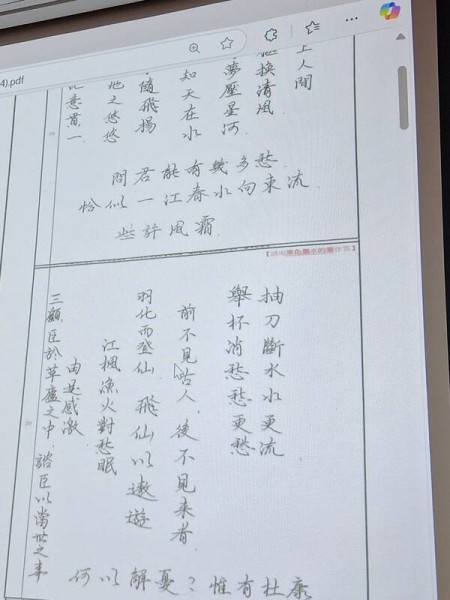 4).pdf
上人間
換清風
夢壓星河
知天在水
隨飛揚
地之悠悠
意貫一
問君能有幾多愁
恰似一江春水向東流
些許風霜
黑色墨水的筆作答】
抽刀斷水水更流
舉杯消愁愁更愁
前不見古人,後不見来者
羽化而登仙 飛仙以遨遊
江楓漁火對愁眠
由是感激
三顧臣於草廬之中 諮臣以當世之事
何以解憂?惟有杜康